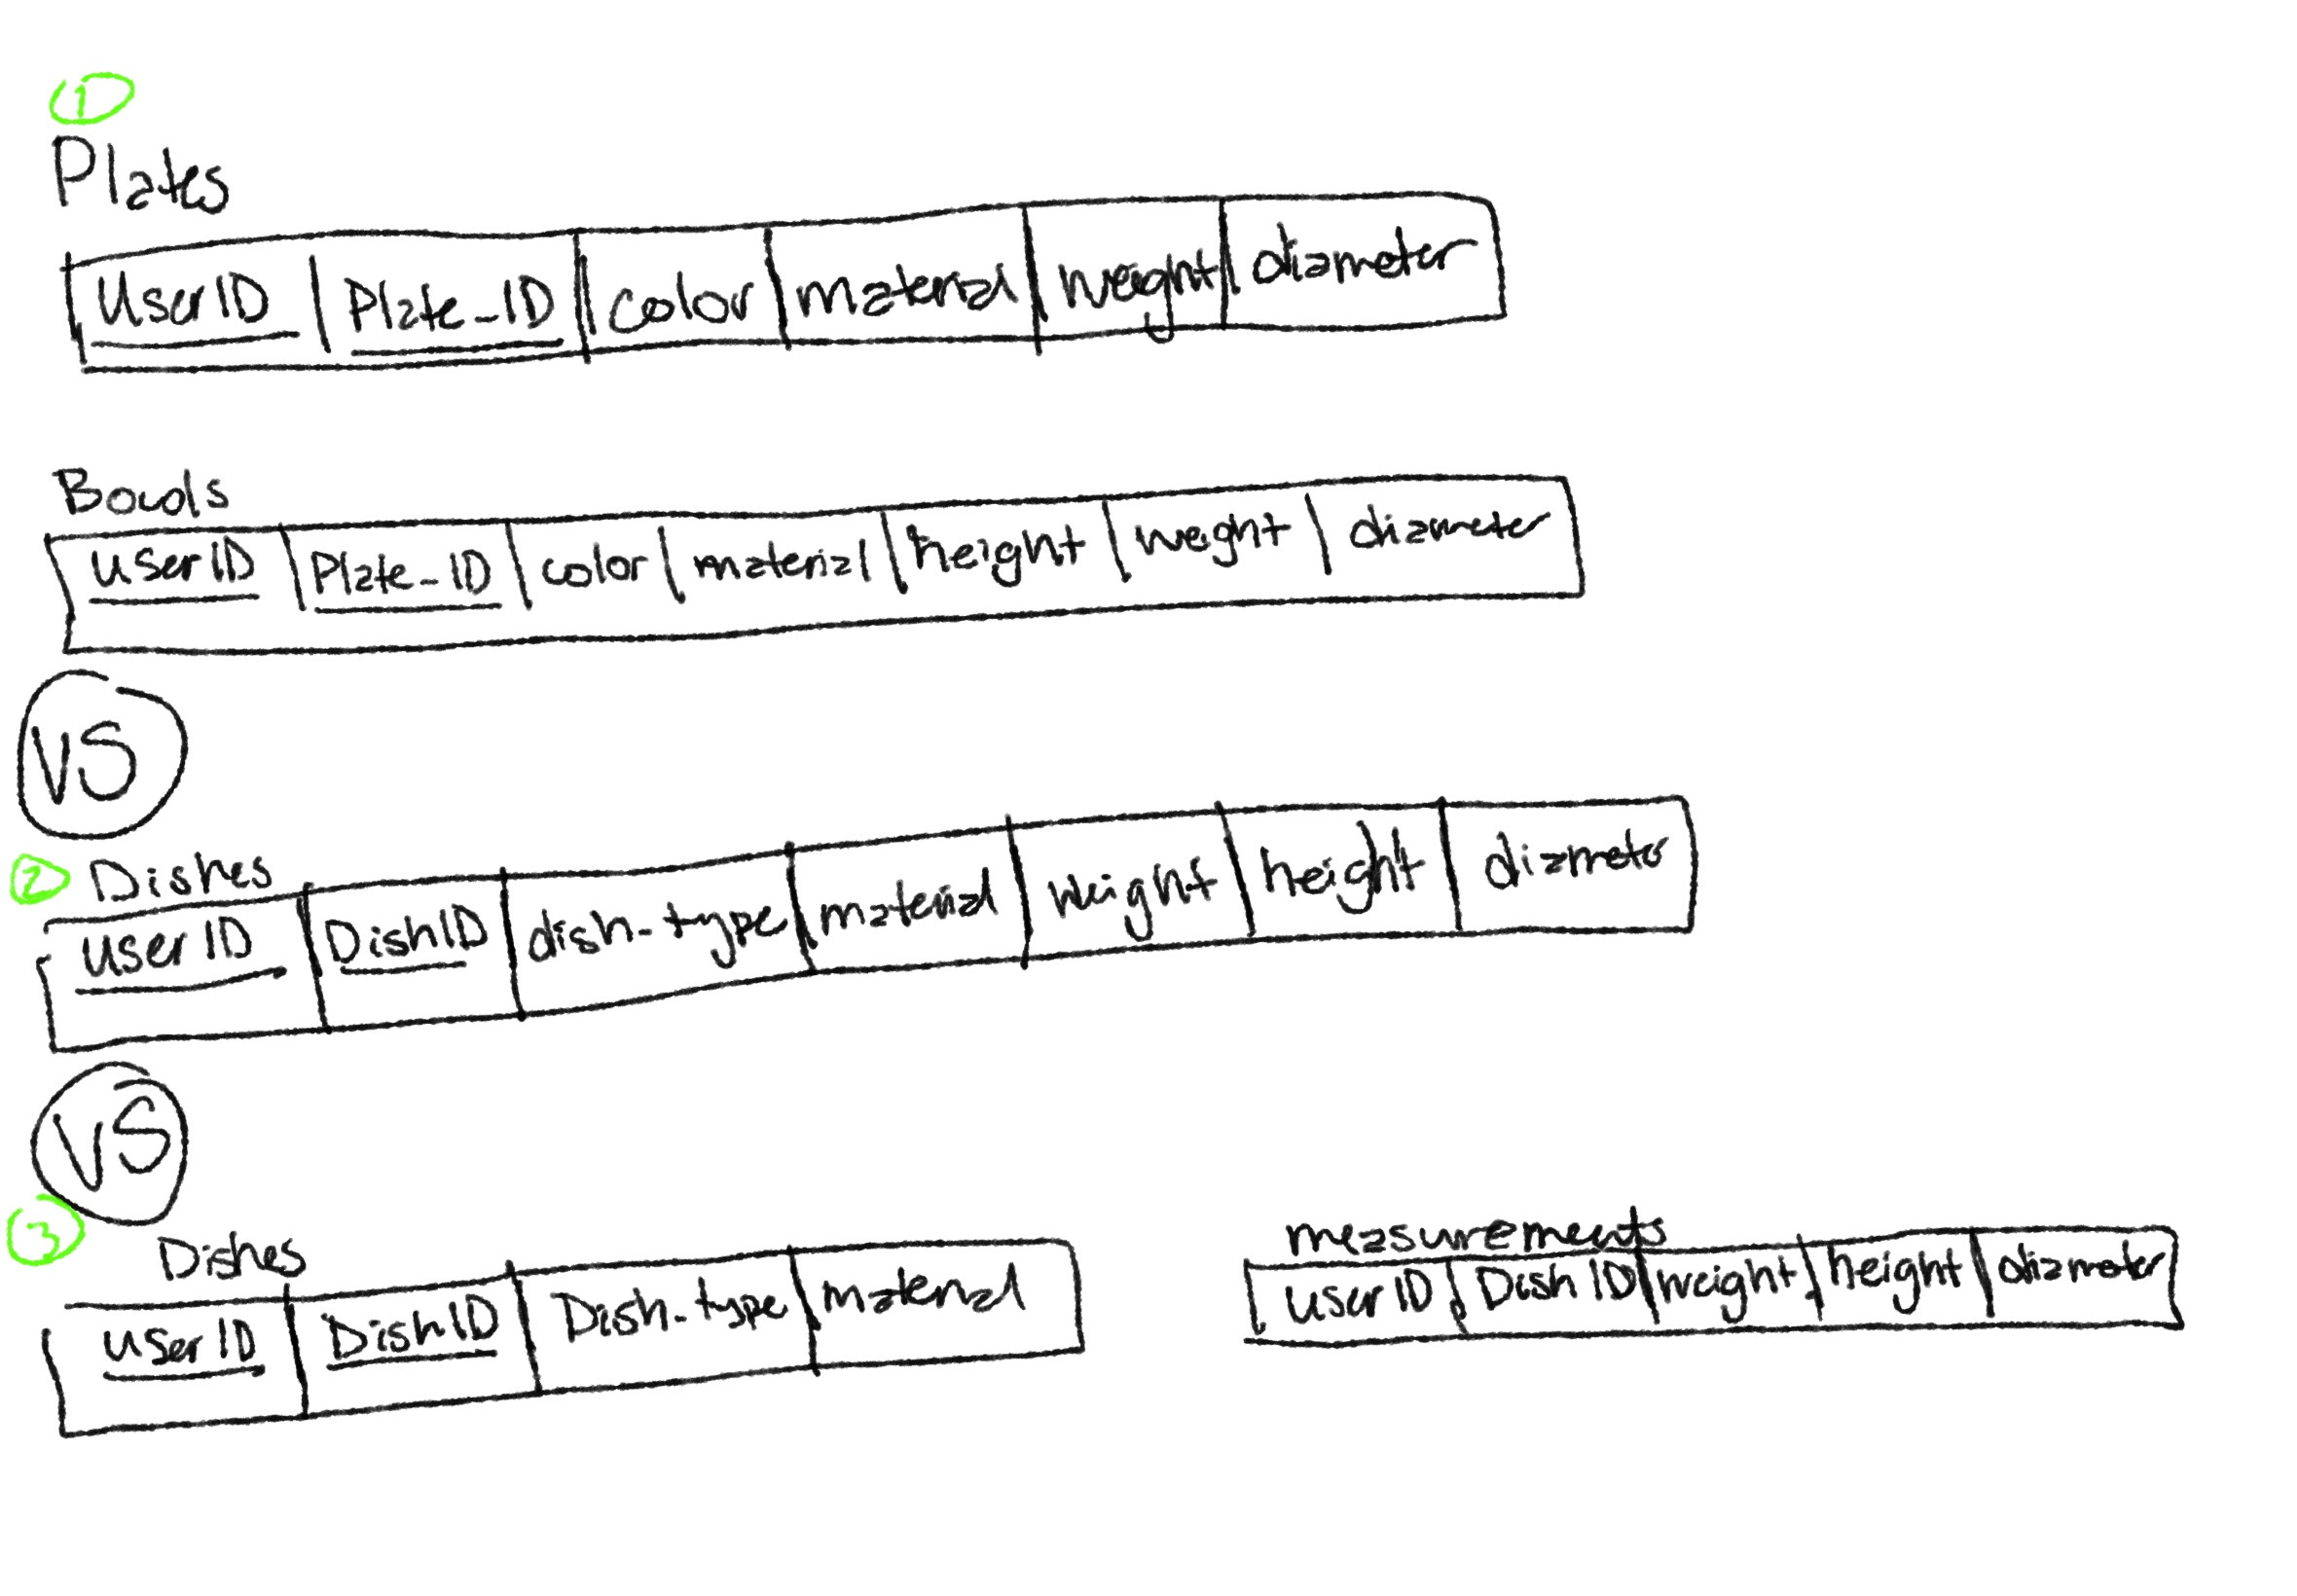 1
Plates
UserID | Plate_ID | color | material | weight | diameter
Bowls
UserID | Plate_ID | color | material | height | weight | diameter
VS
2 Dishes
User ID | DishID | dish-type | material | weight | height | diameter
VS
3
Dishes
User ID | DishID | Dish-type | material
measurements
User ID | Dish ID | weight | height | diameter